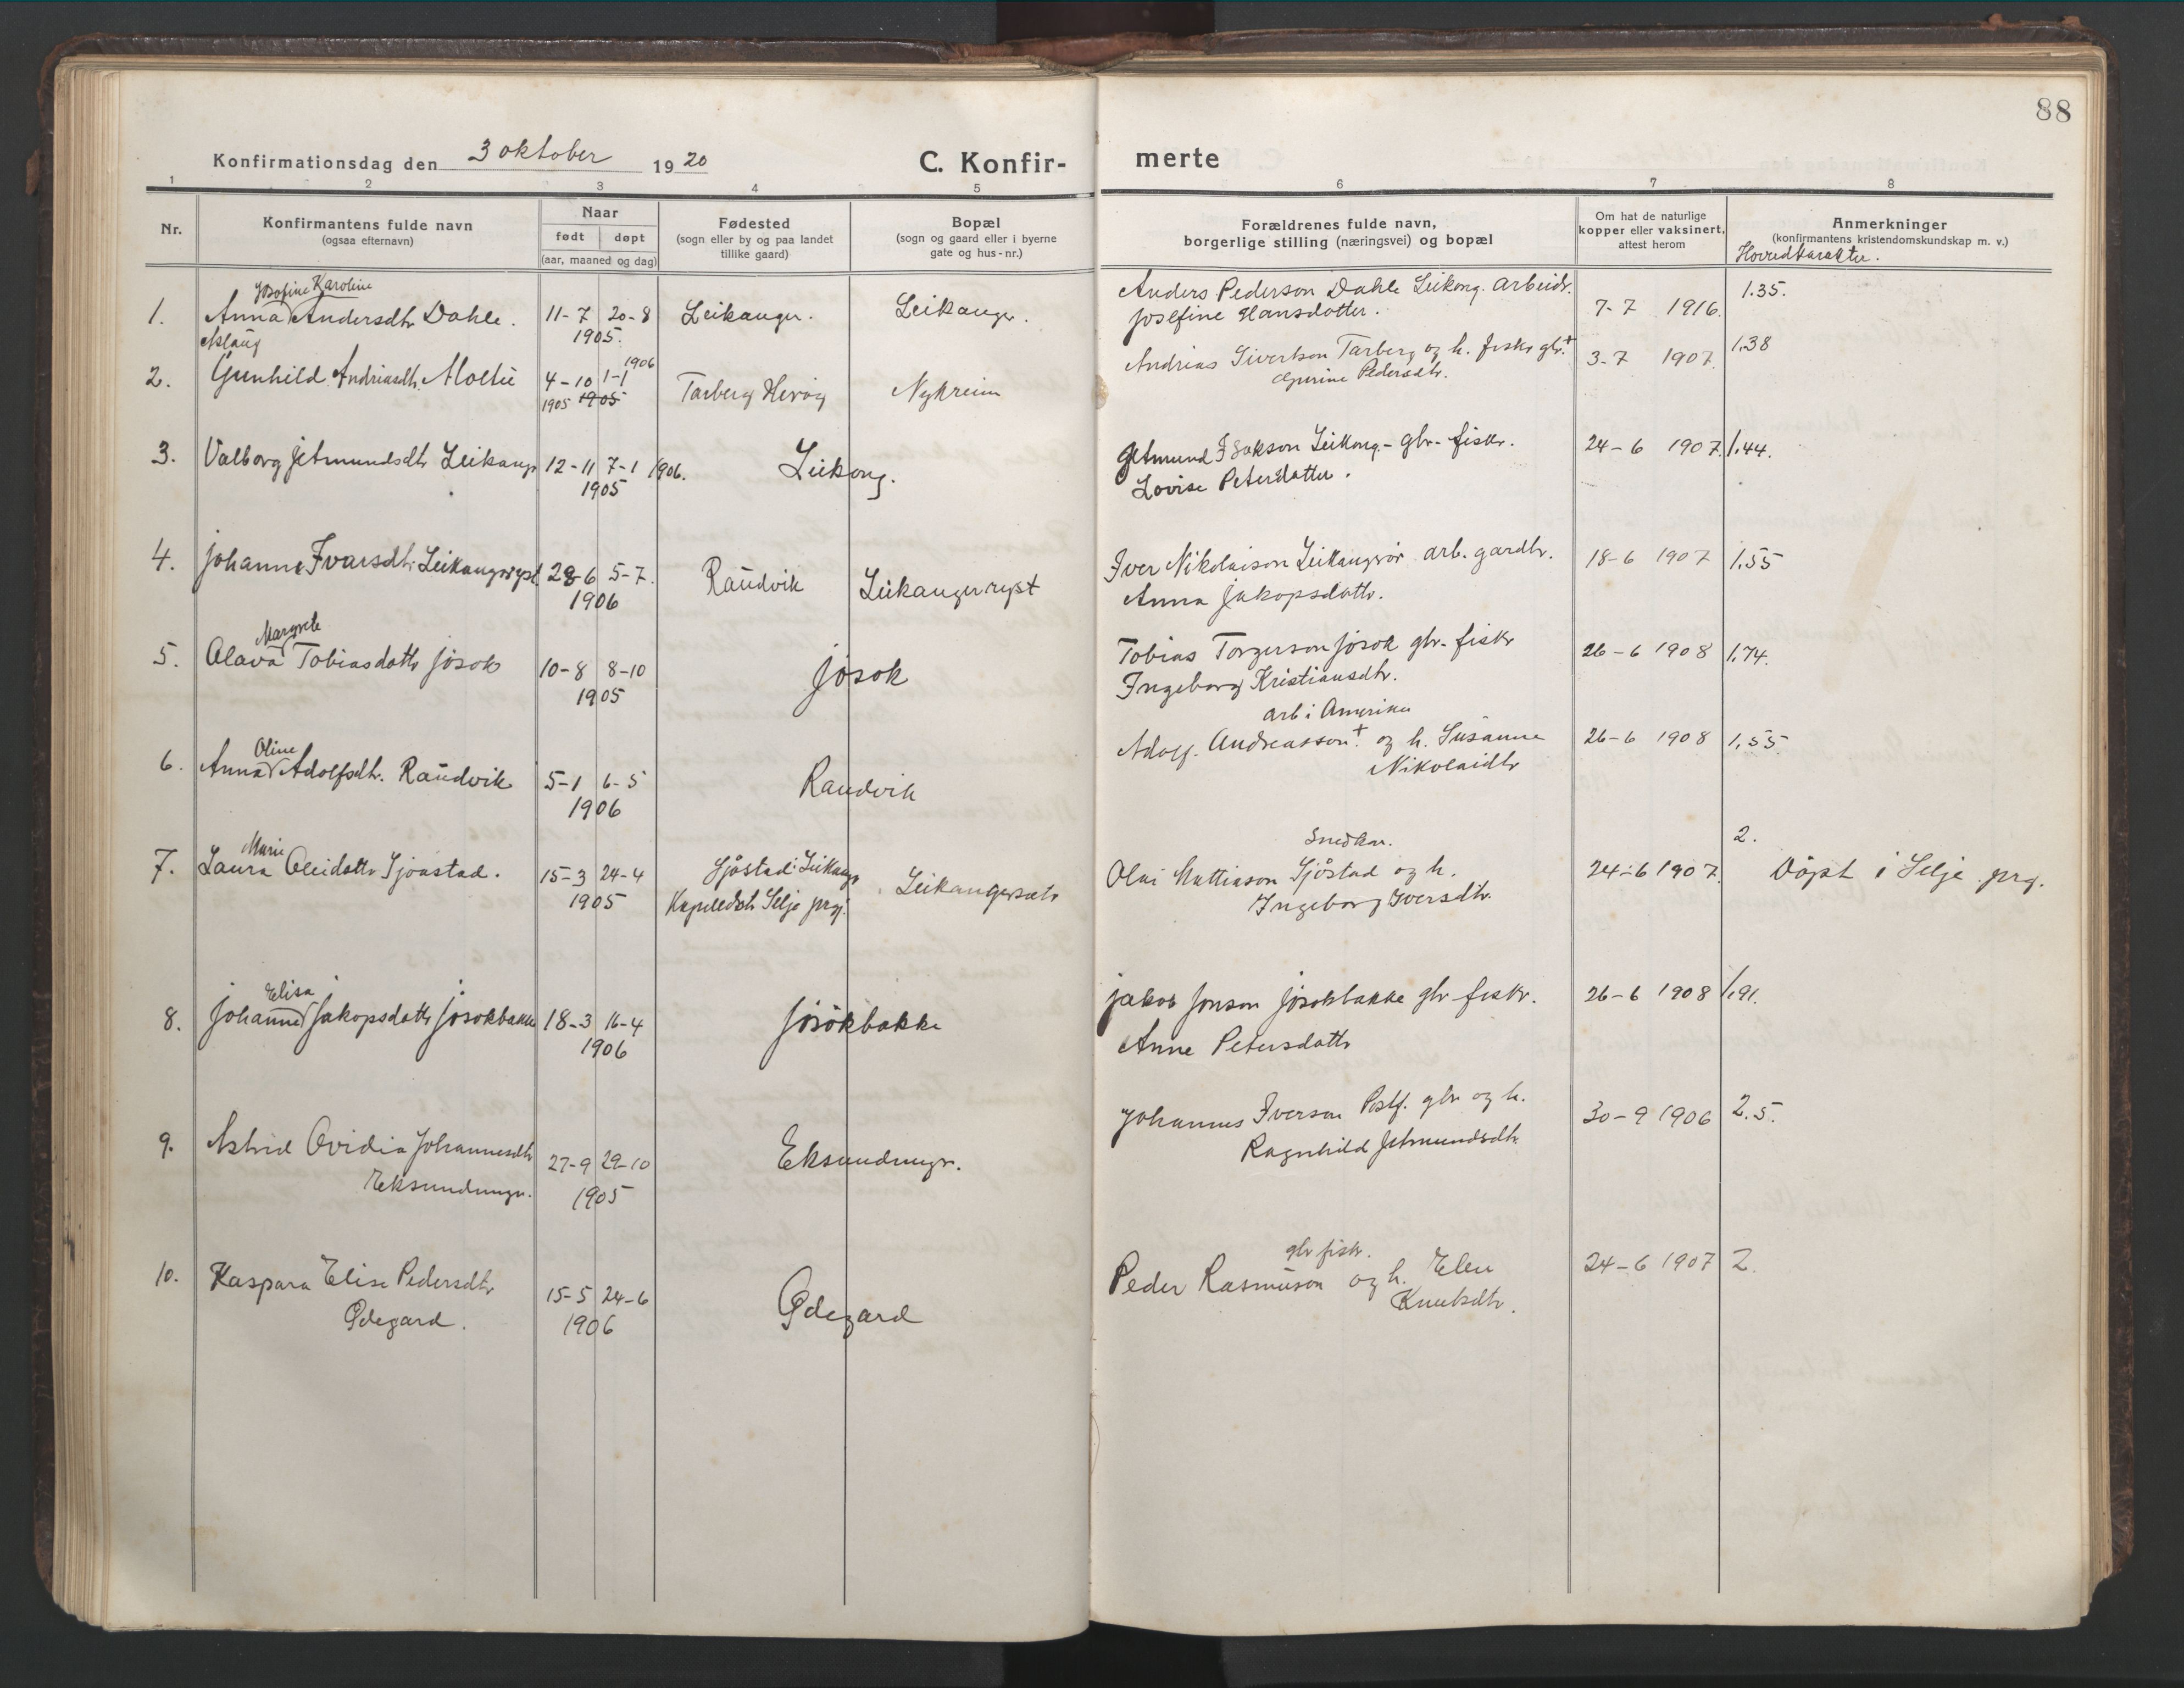 88
Konfirmationsdag den 3 oktober 1920
C. Konfir-
merte
1 2 3 4 5 6 7 8
Nr.
Konfirmantens fulde navn
(ogsaa efternavn)
Naar
født døpt
(aar, maaned og dag)
Fødested
(sogn eller by og paa landet
tillike gaard)
Bopæl
(sogn og gaard eller i byerne
gate og hus-nr.)
Forældrenes fulde navn,
borgerlige stilling (næringsvei) og bopæl
Om hat de naturlige
kopper eller vaksinert,
attest herom
Anmerkninger
(konfirmantens kristendomskundskap m. v.)
Hovedkarakter.
Josofine Karoline
1. Anna Andersdtr Dahle. 11-7 20-8 Leikanger. Leikanger.
1905.
Anders Pederson Dahle Leikong. arbeidr. 1.35.
Josefine Hansdotter. 7-7 1916.
Aslaug
2. Gunhild Andriasdtr. Moltu 4-10 1-1 1906 Tarberg Herøy Nykreim
1905 1905
Andrias Sivertson Tarberg og h. fiskr gbr.† 3-7 1907. 1.38
Gurine Pedersdtr.
3. Valborg Jetmundsdtr Leikanger 12-11 7-1 1906. Leikong.
1905
Jetmund Isakson Leikong - gbr- fiskr. 24-6 1907. 1.44.
Lovise Petersdatter.
4. Johanne Ivarsdtr. Leikangerryst 28-6 5-7. Raudvik Leikangerryst
1906
Iver Nikolaison Leikangrør arb. gardbr. 18-6 1907 1.55
Anna Jakopsdottr.
Margrete
5. Olava Tobiasdottr Jøsok 10-8 8-10 Jøsok
1905
Tobias Torgerson Jøsok gbr. fiskr 26-6 1908 1.74.
Ingeborg Kristiansdtr.
Oline
6. Anna Adolfsdtr. Raudvik 5-1 6-5 Raudvik
1906
arb i Amerika
Adolf. Andreasson† og h. Susanne 26-6 1908 1,55.
Nikolaidtr
Marie
7. Laura Oleidottr Sjøastad. 15-3 24-4 Sjøstad: Leikanger Leikangersætr
1905 Kapeldstr Selje prgj.
Snedker. 2.
Olai Mattiason Sjøstad og h. 24-6 1907. Døpt i Selje prg.
Ingeborg Iversdtr.
Elisa
8. Johanne Jakopsdottr Jøsokbakke 18-3 16-4 Jøsøkbakke
1906
Jakob Jonson Jøsokbakke gbr fiskr. 26-6 1908 1,91.
Anne Petersdottr
9. Astrid Ovidia Johannesdtr 27-9 29-10 Eksundnngr.
Eksundnngr. 1905
Johannes Iverson Postf. gbr og h. 30-9 1906 2.5.
Ragnhild Jetmundsdtr.
10. Kaspara Elise Pedersdtr 15-5 24-6 Ødegard
Ødegard. 1906
gbr fiskr.
Peder Rasmuson og h. Elen 24-6 1907 2.
Knutsdtr.